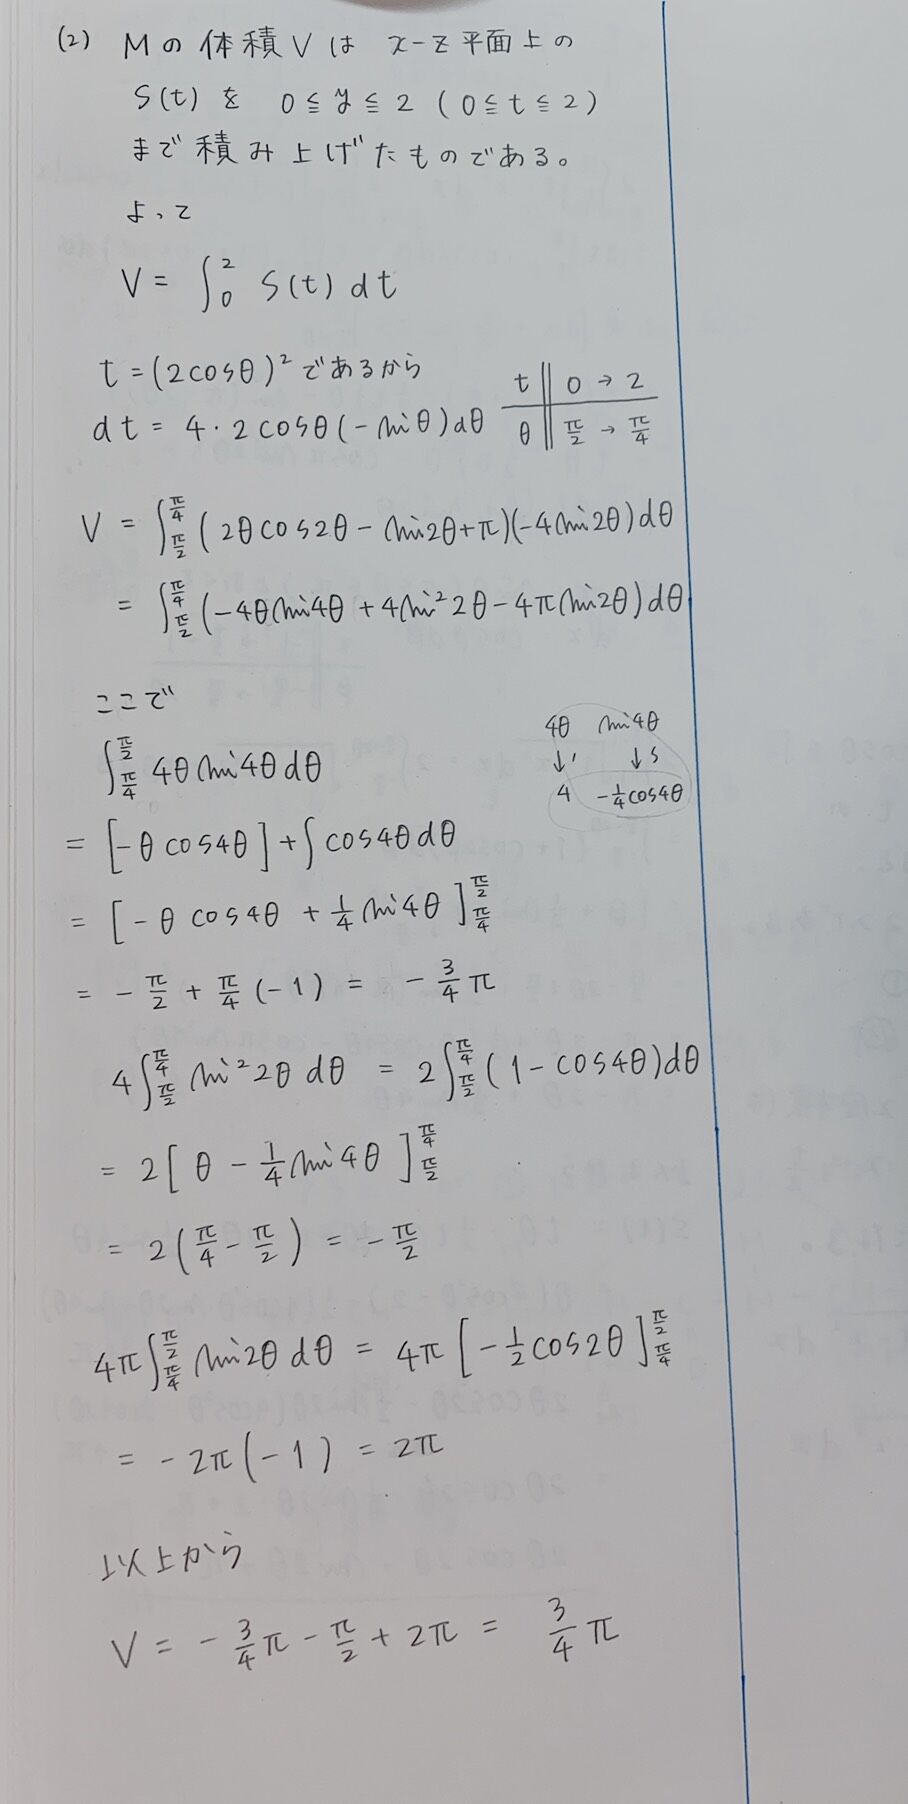 (2) Mの体積Vは x-z平面上の
S(t)を 0≦y≦2 (0≦t≦2)
まで積み上げたものである。
よって
V = ∫₀² S(t) dt
t = (2cosθ)² であるから
dt = 4・2cosθ(-sinθ)dθ
t || 0 → 2
θ || π/2 → π/4
V = ∫_{π/2}^{π/4} (2θcos2θ - sin2θ + π)(-4sin2θ)dθ
= ∫_{π/2}^{π/4} (-4θsin4θ + 4sin²2θ - 4πsin2θ)dθ
ここで
∫_{π/4}^{π/2} 4θsin4θdθ
4θ sin4θ
↓' ↓s
4 -1/4 cos4θ
= [-θcos4θ] + ∫cos4θdθ
= [-θcos4θ + 1/4 sin4θ]_{π/4}^{π/2}
= -π/2 + π/4 (-1) = -3/4 π
4∫_{π/2}^{π/4} sin²2θ dθ = 2∫_{π/2}^{π/4} (1-cos4θ)dθ
= 2[θ - 1/4 sin4θ]_{π/2}^{π/4}
= 2(π/4 - π/2) = -π/2
4π∫_{π/4}^{π/2} sin2θ dθ = 4π[-1/2 cos2θ]_{π/4}^{π/2}
= -2π(-1) = 2π
以上から
V = -3/4 π - π/2 + 2π = 3/4 π